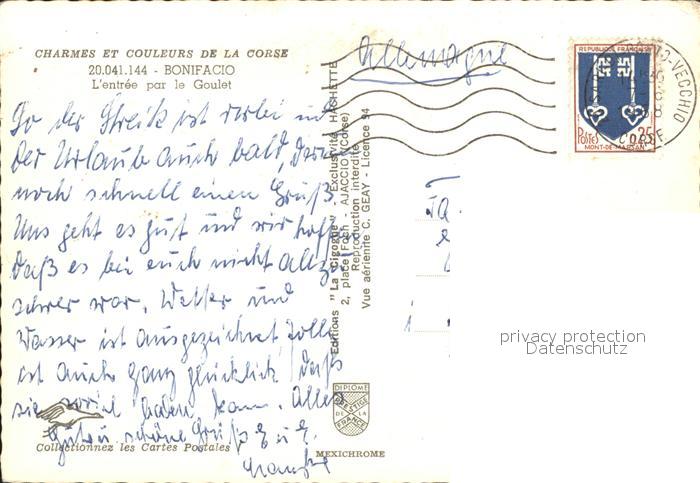 CHARMES ET COULEURS DE LA CORSE
20.041.144 - BONIFACIO
L'entrée par le Goulet
Allemagne
So der Streik ist vorbei und
der Urlaub auch bald, drum
noch schnell einen Gruß.
Uns geht es gut und wir hoffen
daß es bei euch nicht allzu
schwer war. Wetter und
Wasser ist ausgezeichnet,
ist auch ganz glücklich, daß
sie soviel baden kann. Alles
Gute u. schöne Grüße
Collectionnez les Cartes Postales
Editions "La Cigogne" - Exclusivité HACHETTE
2, place Foch - AJACCIO (Corse)
Reproduction interdite
Vue aérienne C. GEAY - Licence 94
DIPLOME
PRESTIGE
DE LA
FRANCE
MEXICHROME
REPUBLIQUE FRANÇAISE
Postes
MONT-DE-MARSAN
PORTO-VECCHIO
CORSE
privacy protection
Datenschutz